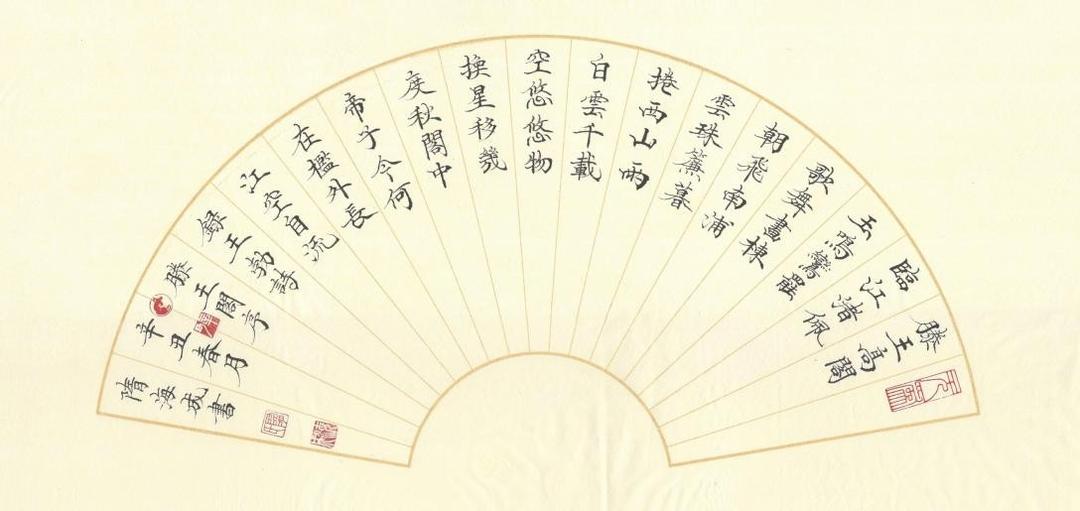 滕王高閣
臨江渚佩
玉鳴鸞罷
歌舞畫棟
朝飛南浦
雲珠簾暮
捲西山雨
白雲千載
空悠悠物
換星移幾
度秋閣中
帝子今何
在檻外長
江空自流
錄王勃詩
滕王閣序
辛丑春月
隋海成書